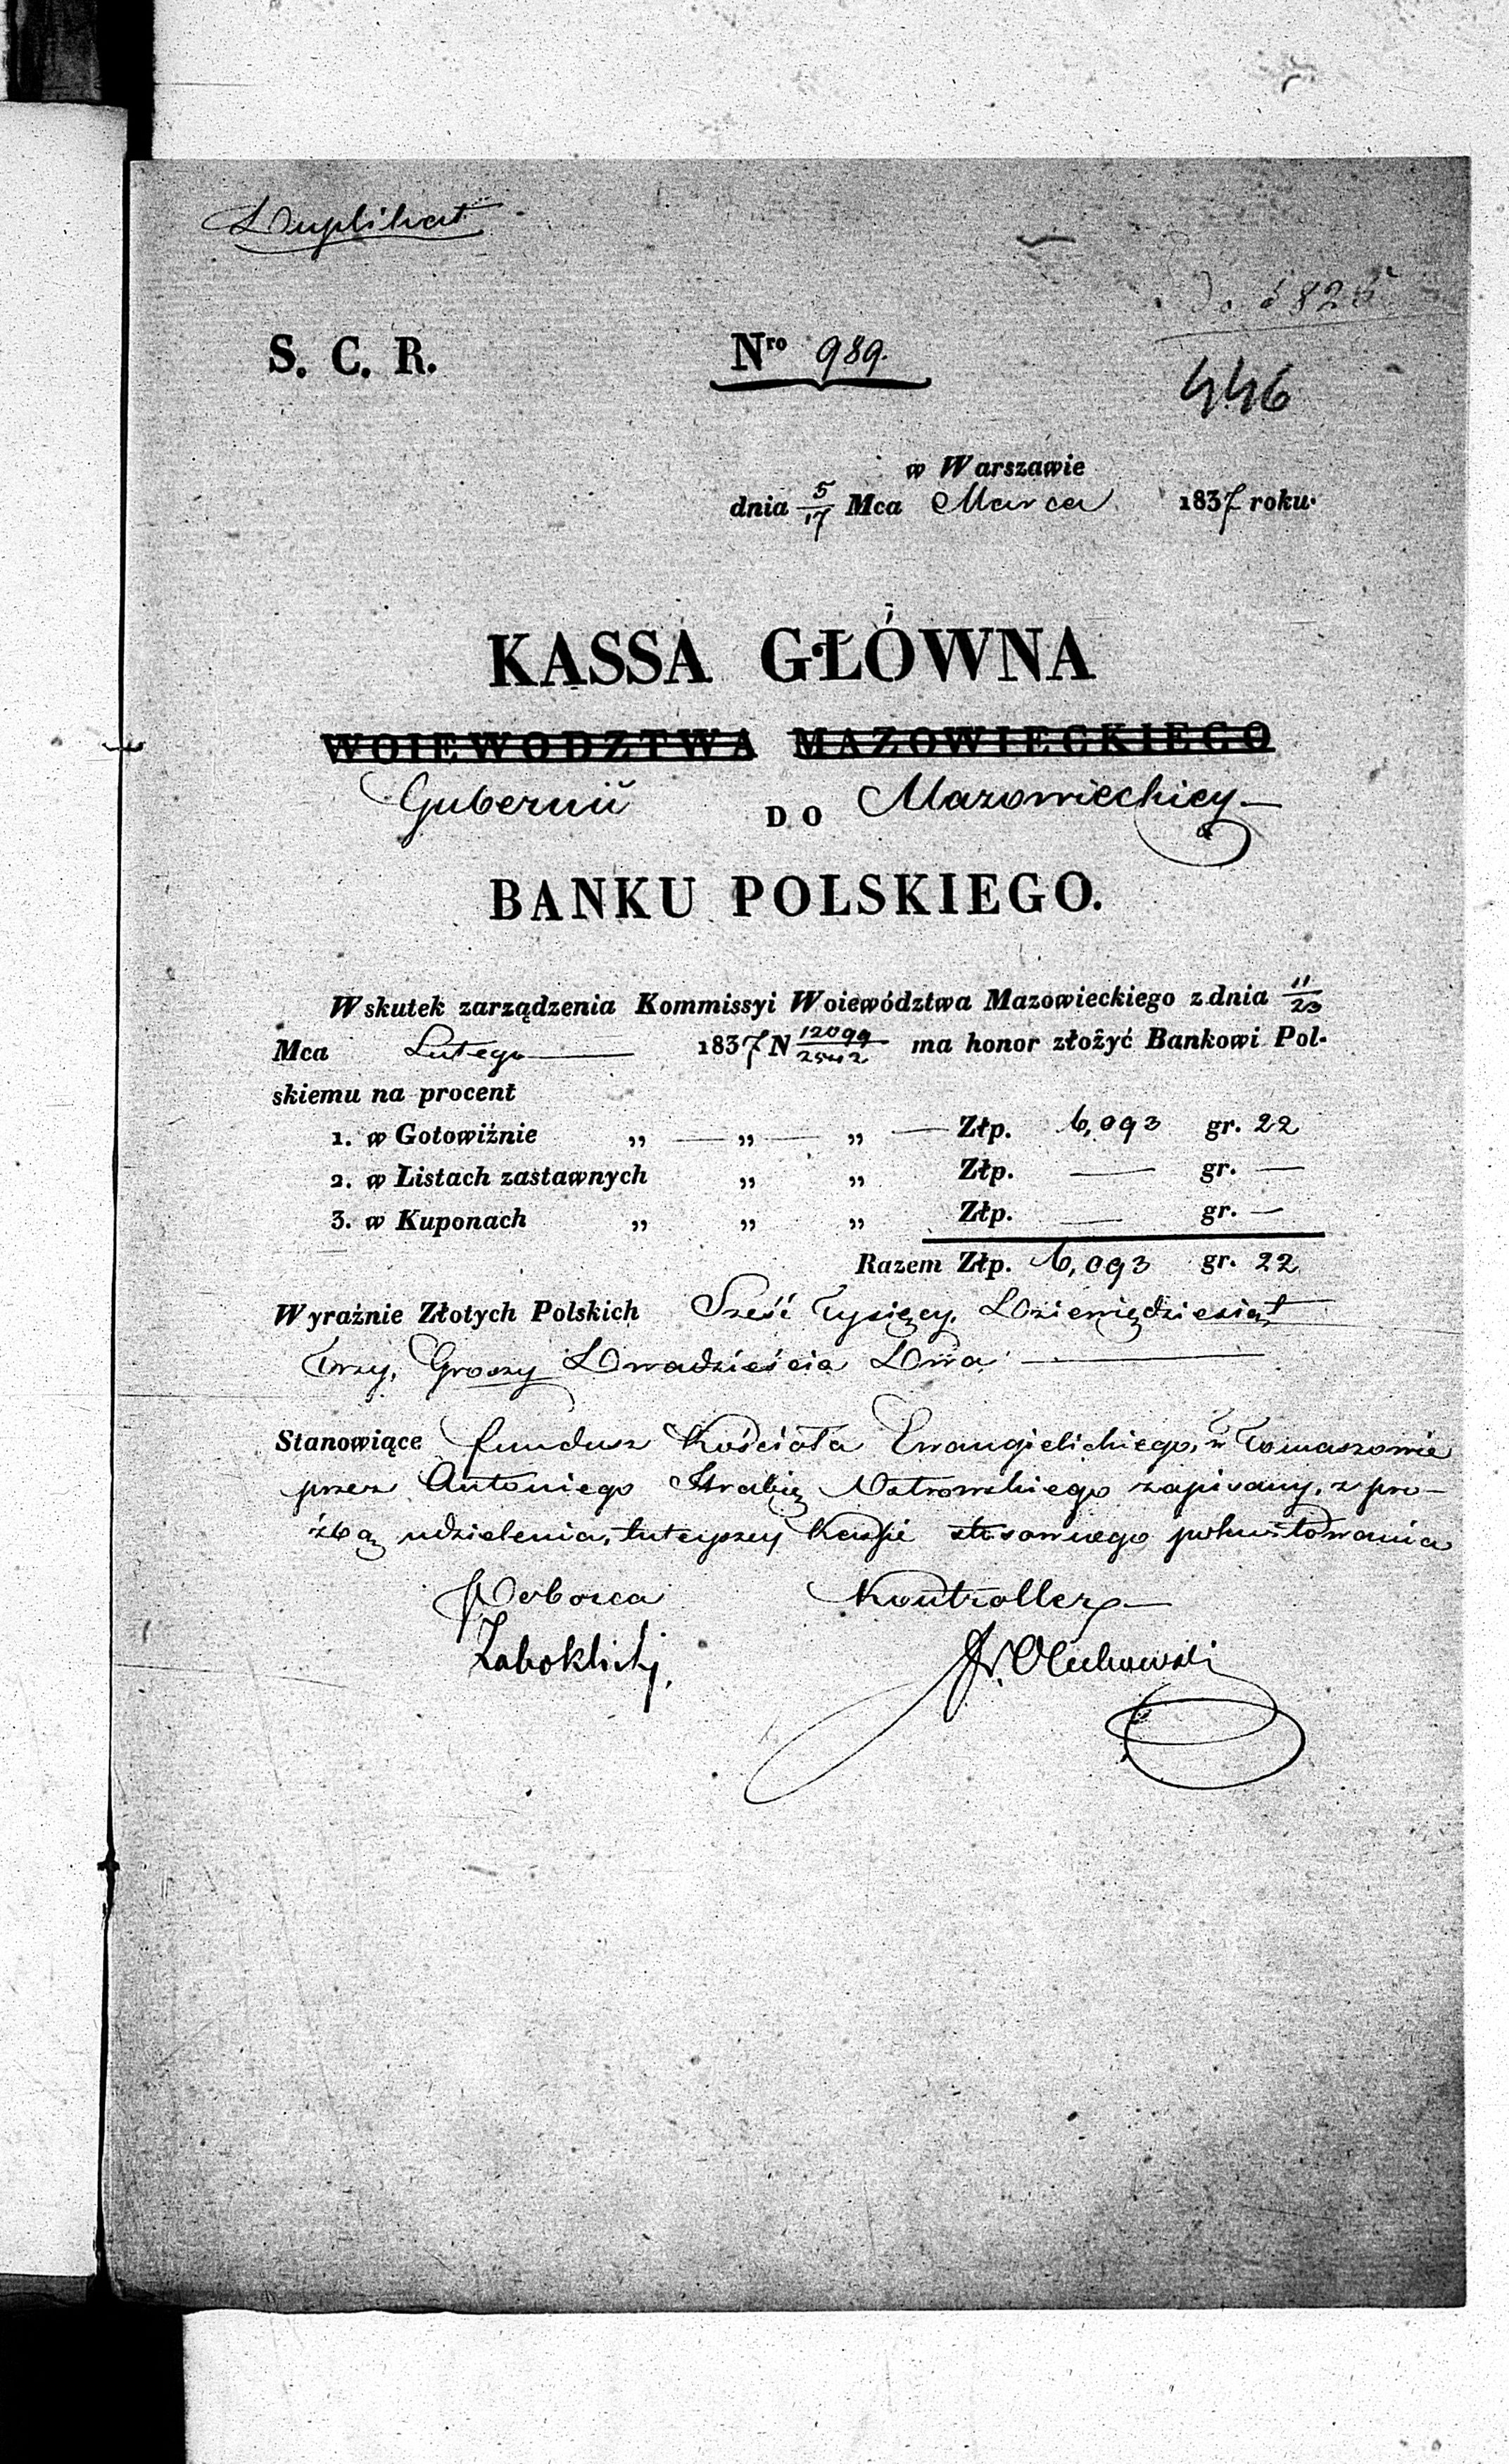 Duplikat
S. C. R.
Nro 989.
446
w Warszawie
dnia 5/17 Mca Marca 1837 roku.
KASSA GŁÓWNA
WOIEWODZTWA MAZOWIECKIEGO
Gubernii DO Mazowieckiey
BANKU POLSKIEGO.
Wskutek zarządzenia Kommissyi Woiewództwa Mazowieckiego z dnia 11/23
Mca Lutego 1837 N 12099/2542 ma honor złożyć Bankowi Pol-
skiemu na procent
1. w Gotowiźnie „ — „ — „ — Złp. 6,093 gr. 22
2. w Listach zastawnych „ „ Złp. — gr. —
3. w Kuponach „ „ „ Złp. — gr. —
Razem Złp. 6,093 gr. 22
Wyraźnie Złotych Polskich Sześć Tysięcy, Dziewięćdziesiąt
Trzy, Groszy Dwadzieścia Dwa —
Stanowiące fundusz Kościoła Ewangielickiego, w Tomaszowie
przez Antoniego Hrabię Ostrowskiego zapisany, z pro-
źbą udzielenia, tuteyszey Kassie stosownego pokwitowania
Poborca Kontroller
Zaboklicki, Olechowski